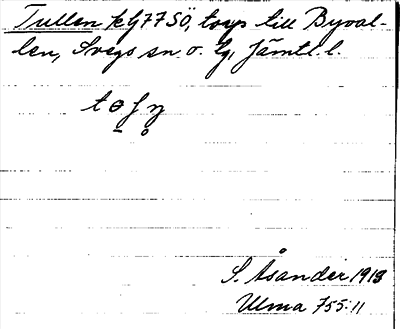 Tullen kG77SÖ, torp till Byval-
len, Svegs sn o. tg, Jämtl. l.
S. Åsander 1913
Ulma 755:11